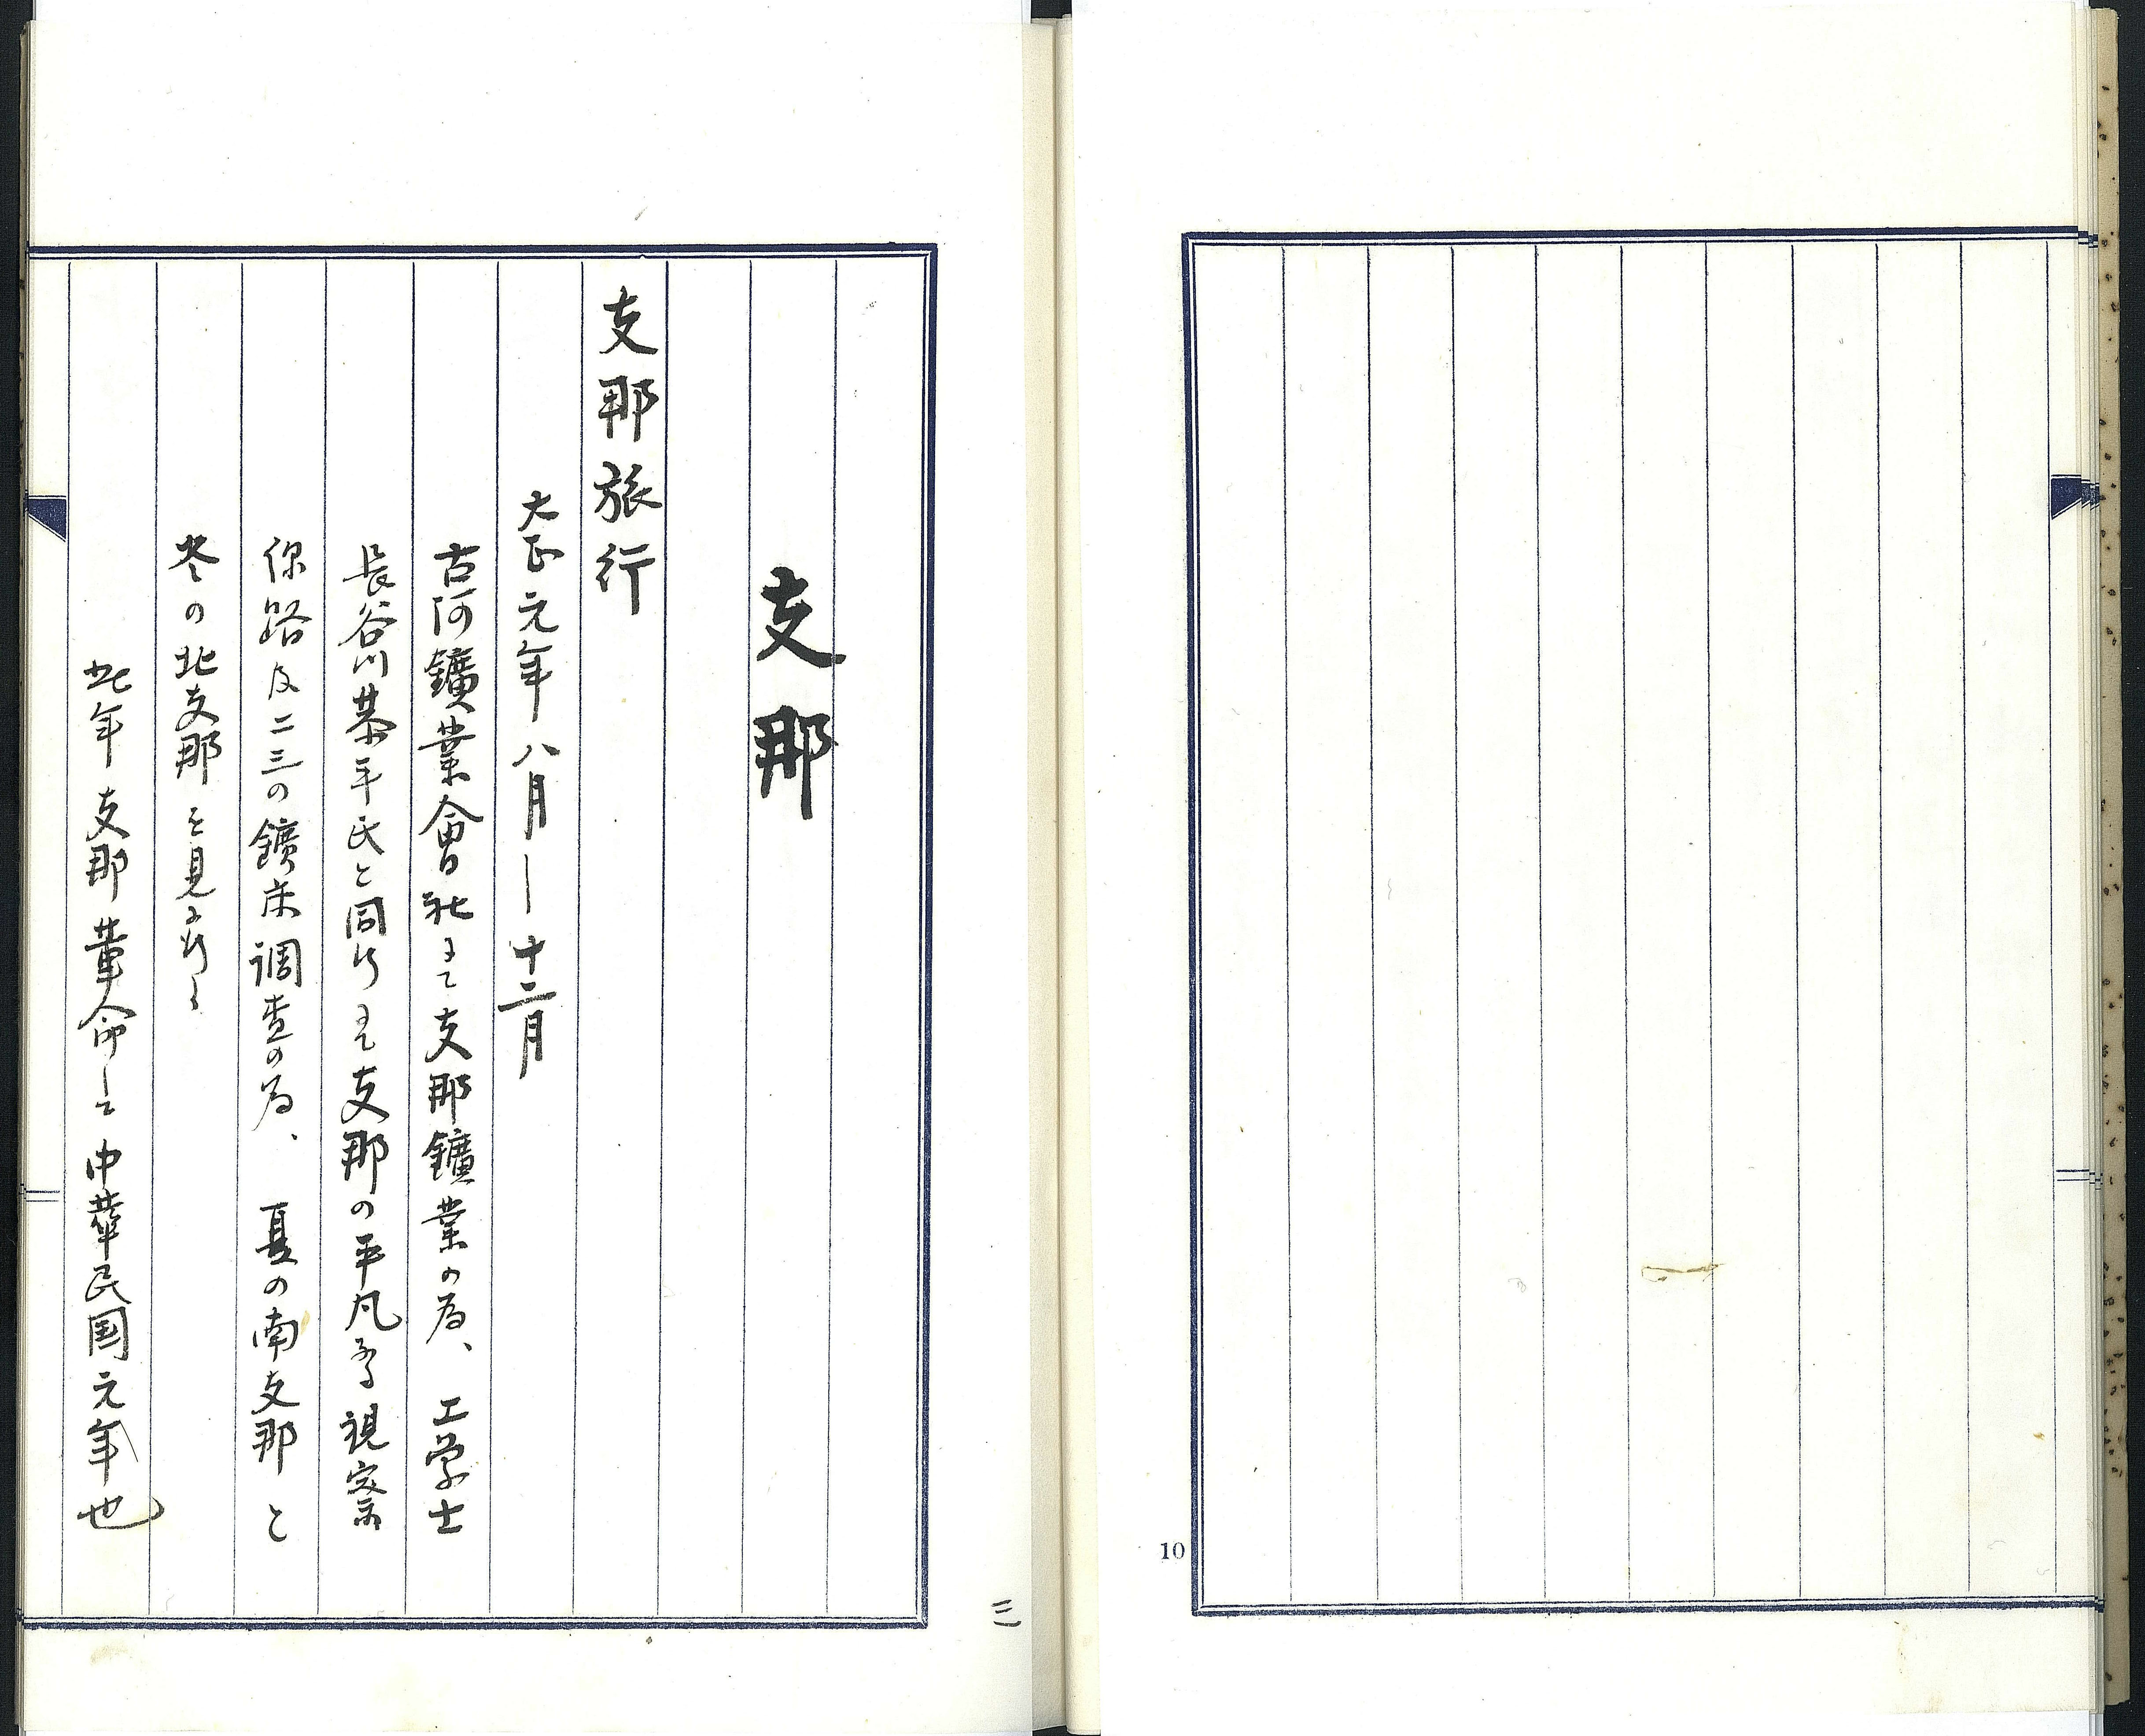 支那
支那旅行
大正元年八月―十二月
古河鑛業會社にて支那鑛業の為、工学士
長谷川恭平氏と同行して支那の平凡なる視察
線路及二三の鑛床調査の為、夏の南支那と
冬の北支那を見に行く
此年支那革命して中華民国元年也
三
10